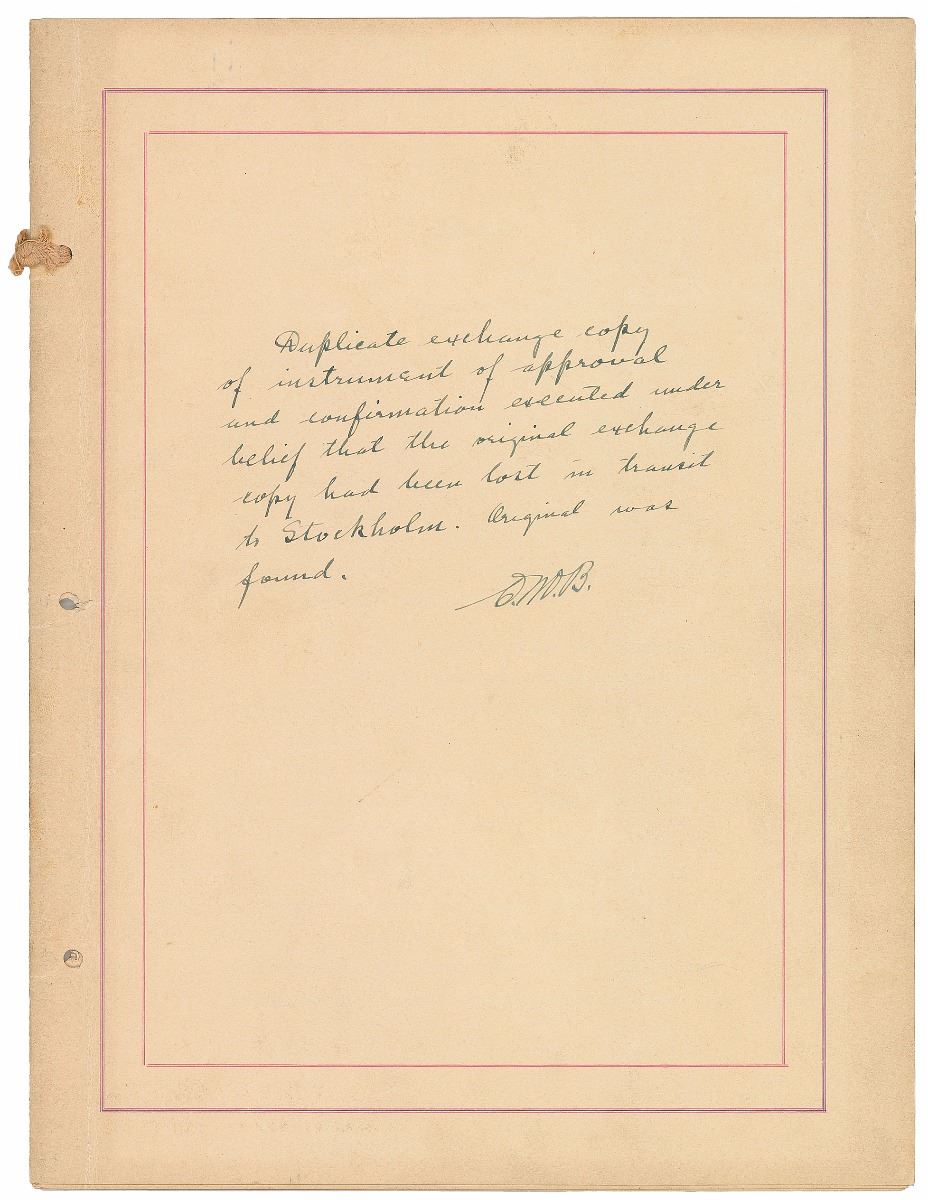 Duplicate exchange copy
of instrument of approval
and confirmation executed under
belief that the original exchange
copy had been lost in transit
to Stockholm. Original was
found.
C.M.B.